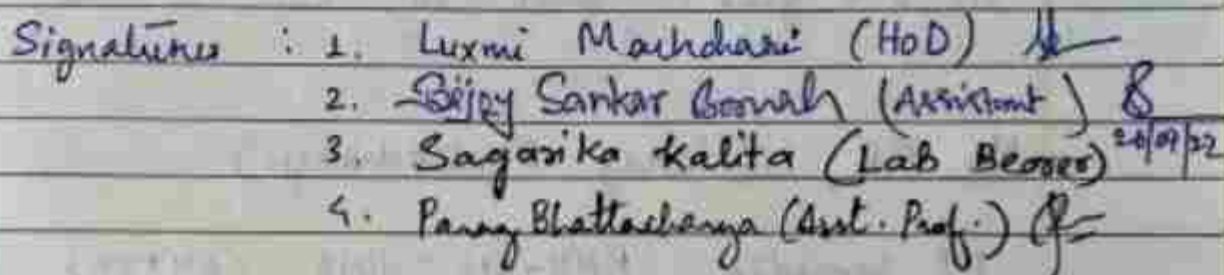 Signatures : 1. Luxmi Machahari (HoD)
2. Bijoy Sankar Boruah (Assistant)
26/09/22
3. Sagarika Kalita (Lab Bearer)
4. Parag Bhattacharya (Asst. Prof.)